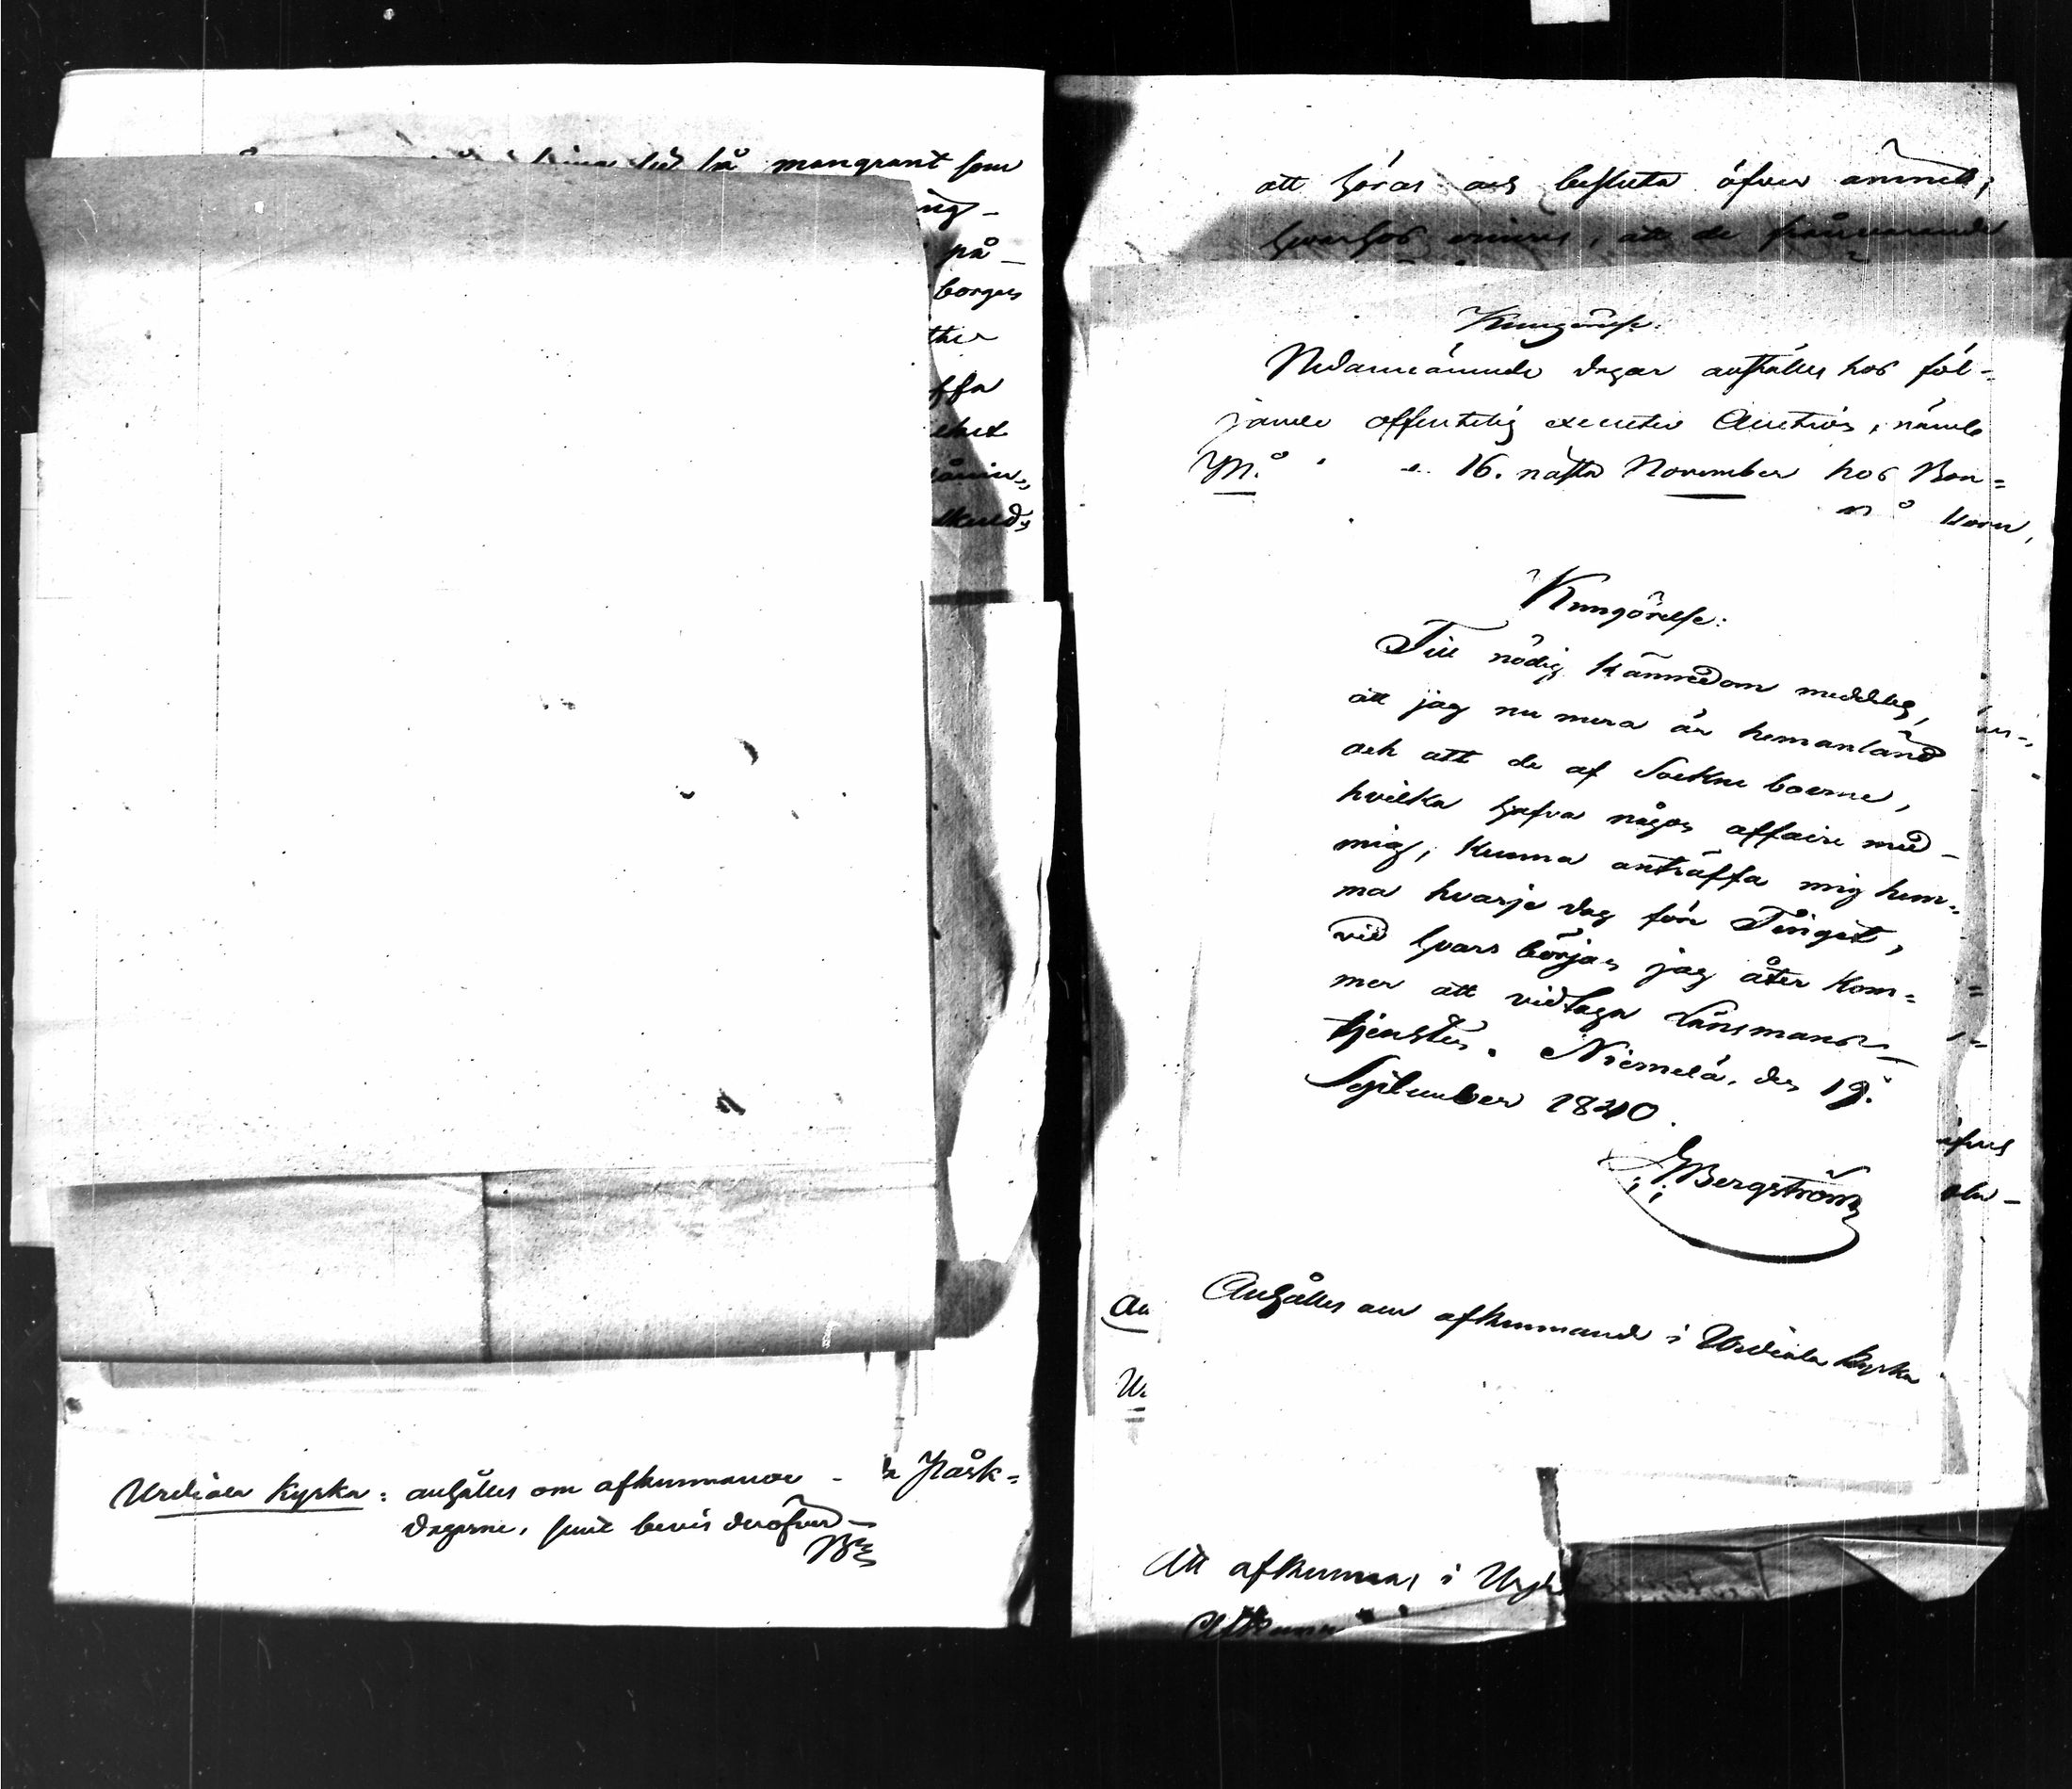 så mangrant som
ng-
på-
borges
ther
ffa
skuld,
Urdiala Kyrka: anhålles om afkunnande - Påsk=
dagarne, samt bevis deröfver -
att höras och besluta öfver ämnet,
hvarhos erinras, att de frånvarande
Kungörelse:
Nedannämnde dagar anställes hos föl=
jande offentelig executiv Auction, nämle
16. nästa November hos Bon=
Kungörelse:
Till nödig kännedom meddelas,
att jag nu mera är hemanländ
och att de af Sockne boerne,
hvilka hafva någon affaire med
mig, kunna anträffa mig hem=
ma hvarje dag före Tinget,
vid hvars början jag åter kom=
mer att vidtaga Länsmans
tjensten. Niemelä, den 19.
September 1840.
GBergström
öfver
Anhålles om afkunnande i Urdiala Kyrka
Att afkunnas i